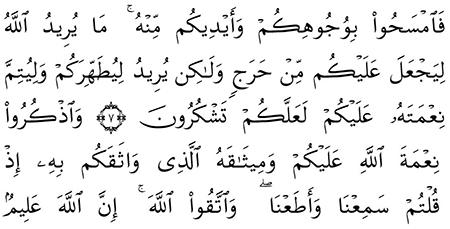 فَٱمْسَحُوا۟ بِوُجُوهِكُمْ وَأَيْدِيكُم مِّنْهُ ۚ مَا يُرِيدُ ٱللَّهُ
لِيَجْعَلَ عَلَيْكُم مِّنْ حَرَجٍ وَلَـٰكِن يُرِيدُ لِيُطَهِّرَكُمْ وَلِيُتِمَّ
نِعْمَتَهُۥ عَلَيْكُمْ لَعَلَّكُمْ تَشْكُرُونَ ﴿٧﴾ وَٱذْكُرُوا۟
نِعْمَةَ ٱللَّهِ عَلَيْكُمْ وَمِيثَـٰقَهُ ٱلَّذِى وَاثَقَكُم بِهِۦٓ إِذْ
قُلْتُمْ سَمِعْنَا وَأَطَعْنَا ۖ وَٱتَّقُوا۟ ٱللَّهَ ۚ إِنَّ ٱللَّهَ عَلِيمٌۢ